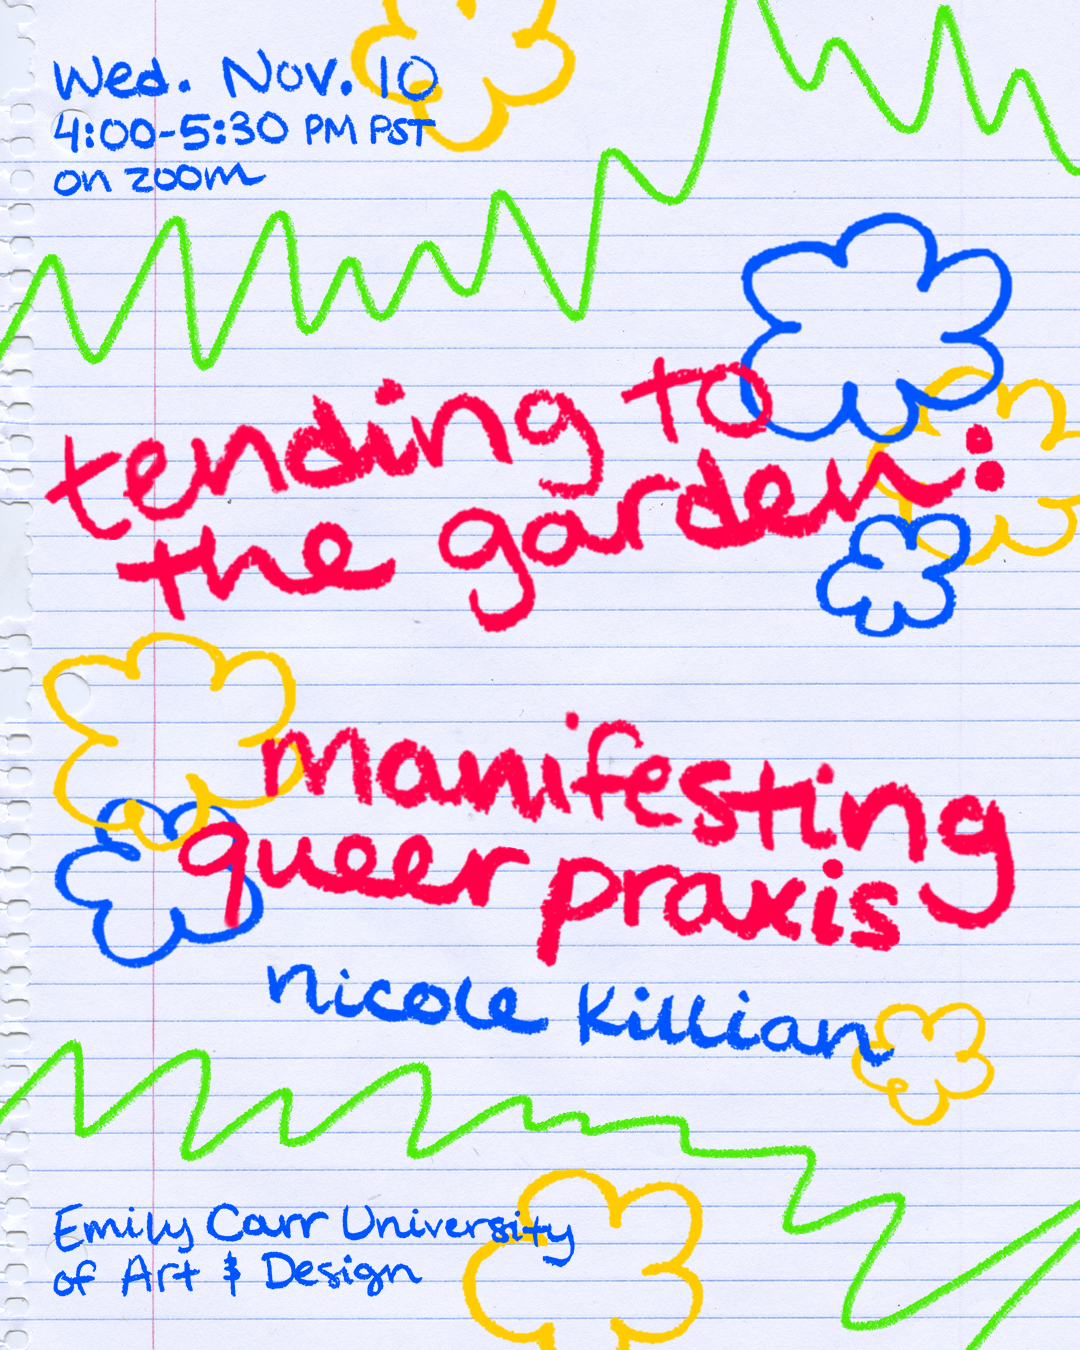 Wed. Nov. 10
4:00-5:30 PM PST
on zoom
tending to
the garden:
manifesting
queer praxis
nicole killian
Emily Carr University
of Art & Design